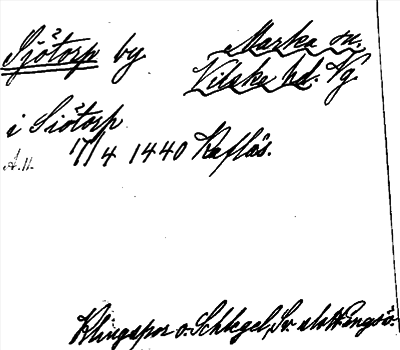 Sjötorp by Marka sn.
Vilske hd. Vg.
i Siötorp
A.H. 17/4 1440 Kaflås.
Klingspor o. Schlegel, Sv. slott Engsö.